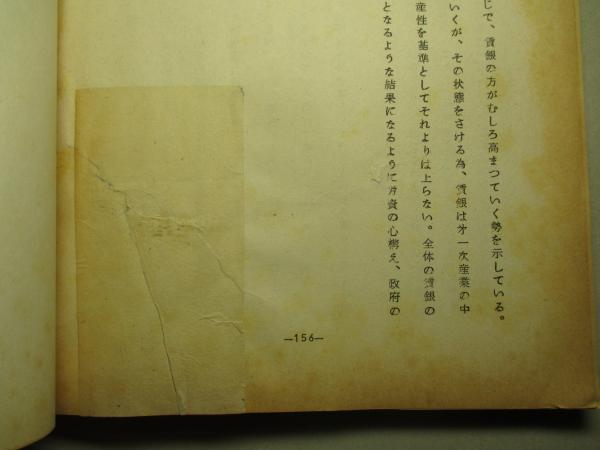 じで、賃銀の方がむしろ高まつていく勢を示している。
いくが、その状態をさける為、賃銀は才一次産業の中
産性を基準としてそれよりは上らない。全体の賃銀の
となるような結果になるように労資の心構え、政府の
—156—